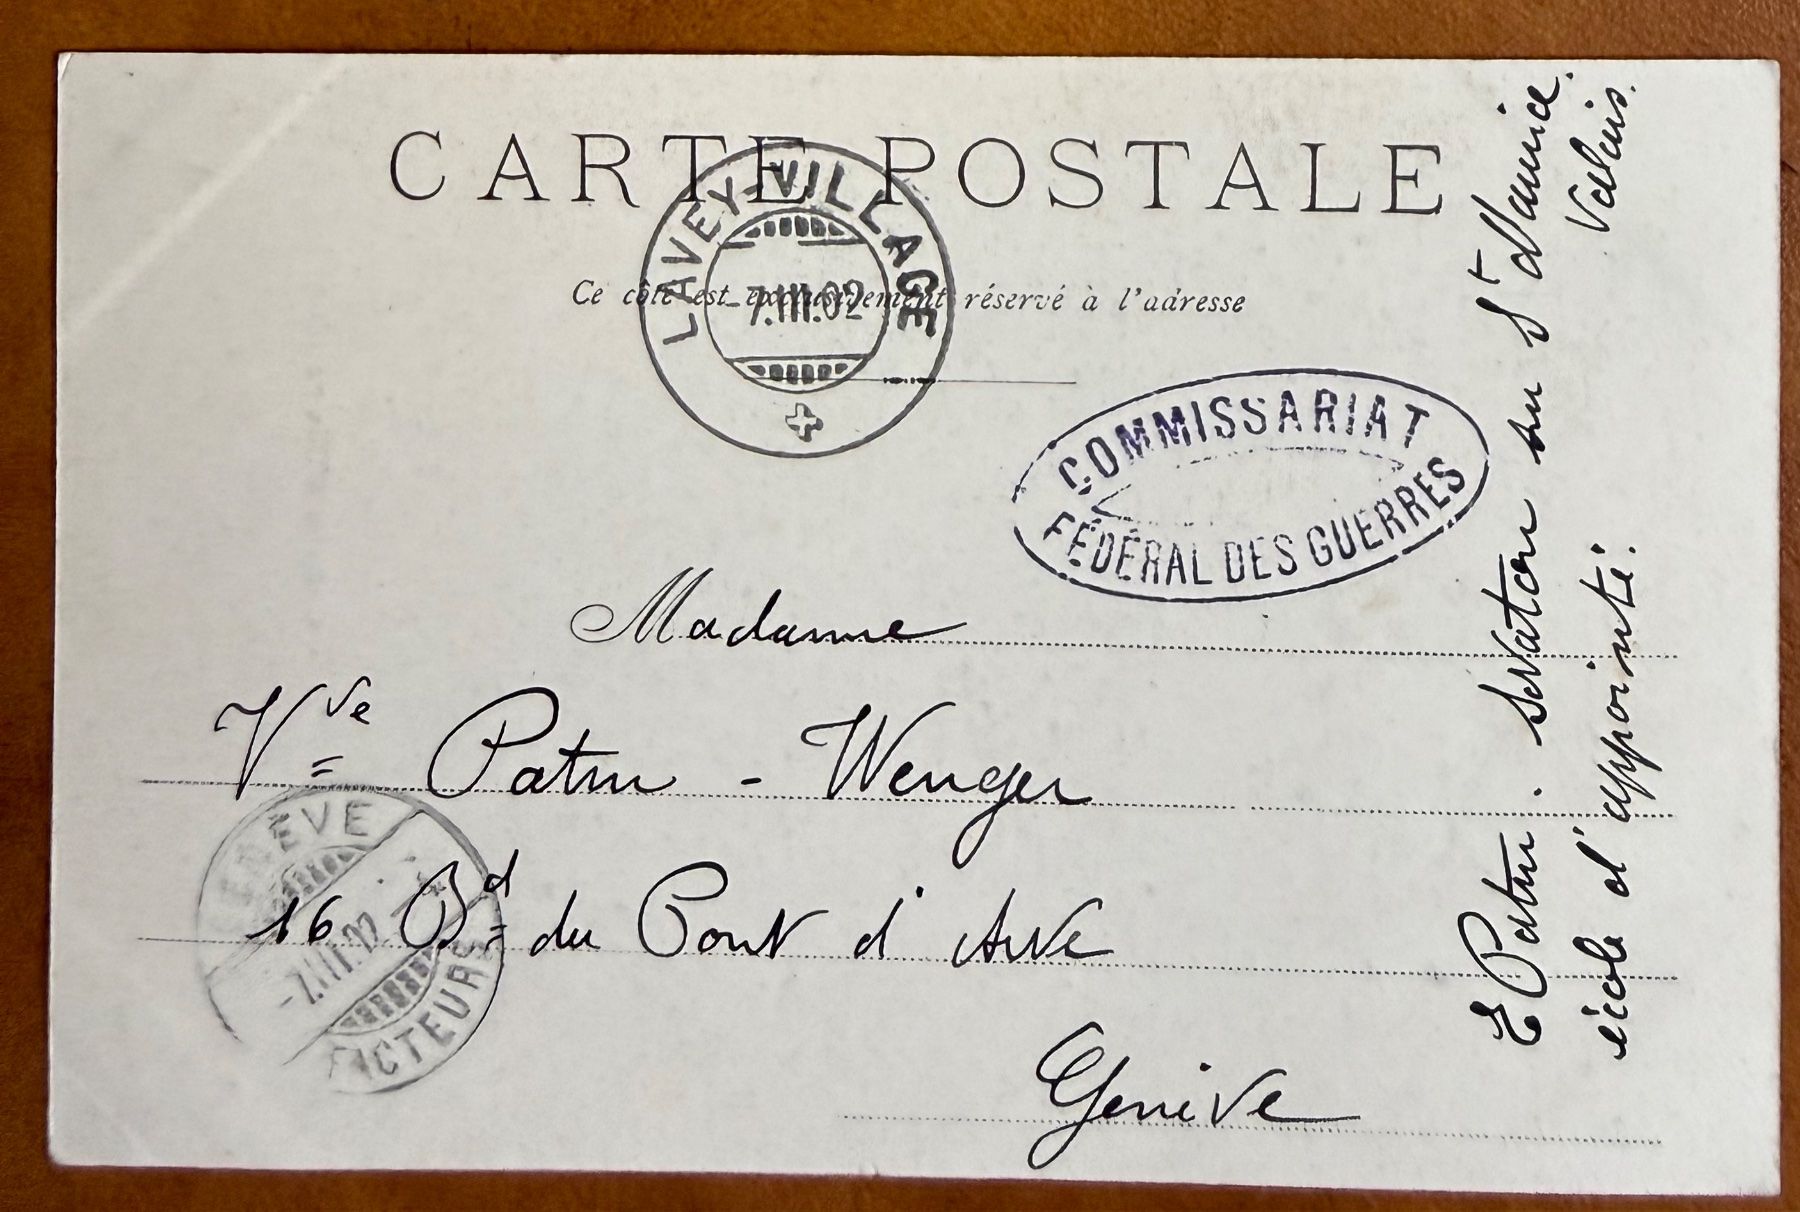 CARTE POSTALE
LAVEY-VILLAGE
-7.III.02
Ce côté est exclusivement réservé à l'adresse
COMMISSARIAT
FÉDÉRAL DES GUERRES
Madame
Vve Patru - Wenger
16 Bd du Pont d'Arve
Genève
GENÈVE
-7.III.02
FACTEURS
E Patru. Savatan su St Maurice.
Valais.
école d'appointé.